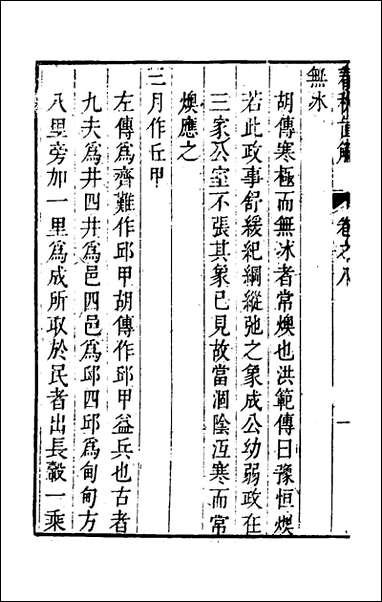 春秋直解 卷之八 一
無冰
胡傳寒極而無冰者常燠也洪範傳曰豫恒燠
若此政事舒緩紀綱縱弛之象成公幼弱政在
三家公室不張其象已見故當涸陰沍寒而常
燠應之
三月作丘甲
左傳為齊難作邱甲胡傳作邱甲益兵也古者
九夫為井四井為邑四邑為邱四邱為甸甸方
八里旁加一里為成所取於民者出長轂一乘